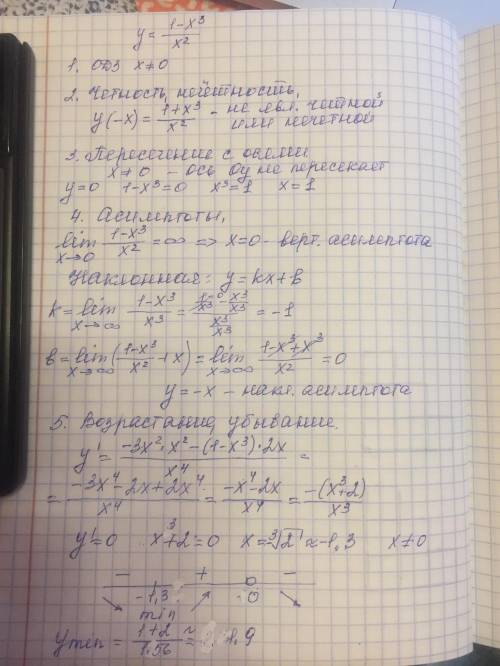 y = (1-x³)/x²
1. ОДЗ x≠0
2. Четность, нечётность,
y(-x) = (1+x³)/x² - не явл. четной
или нечетной
3. Пересечение с осями
x≠0 - ось оу не пересекает
y=0 1-x³=0 x³=1 x=1
4. Асимптоты,
lim x→0 (1-x³)/x² = ∞ => x=0 - верт. асимптота
Наклонная: y=kx+b
k = lim x→∞ (1-x³)/x³ = (1/x³ 0 - x³/x³)/(x³/x³) = -1
b = lim x→∞ ((1-x³)/x² + x) = lim x→∞ (1-x³+x³)/x² = 0
y=-x - накл. асимптота
5. Возрастание, убывание.
y' = (-3x²·x² - (1-x³)·2x)/x⁴ =
= (-3x⁴-2x+2x⁴)/x⁴ = (-x⁴-2x)/x⁴ = -(x³+2)/x³
y'=0 x³+2=0 x=-∛2 ≈ -1,3 x≠0
- + -
-1,3 0
min
ymin = (1+2)/1.56 ≈ 1,9